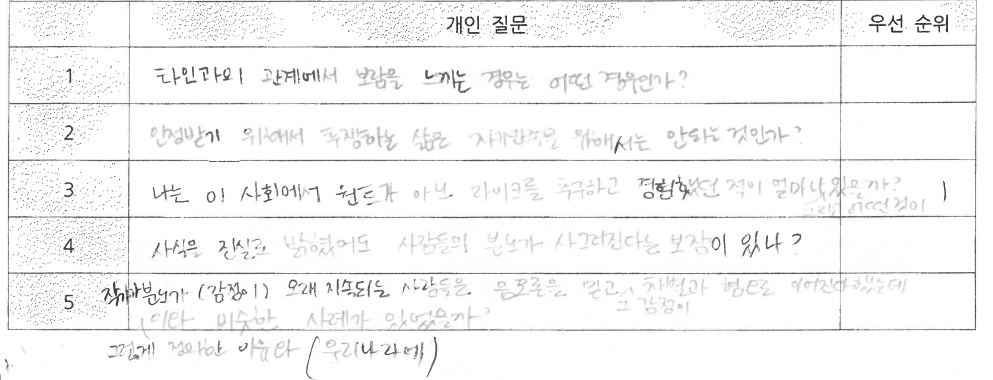 개인 질문 우선 순위
1 타인과의 관계에서 보람을 느끼는 경우는 어떤 경우인가?
2 인정받기 위해서 투쟁하는 삶은 자기만족을 위해서는 안되는 것인가?
3 나는 이 사회에서 원트가 아닌 라이크를 추구하고 경험했던 적이 얼마나 있을까? 1
그리고 어떤 것이
4 사실을 진실로 밝혔어도 사람들의 분노가 사그러진다는 보장이 있나?
5 작가가 분노가 (감정이) 오래 지속되는 사람들은 음모론을 믿고, 차별과 혐오로 이어진다 했는데
그 감정이
이와 비슷한 사례가 있었을까?
그렇게 정의한 이유와 (우리나라에)